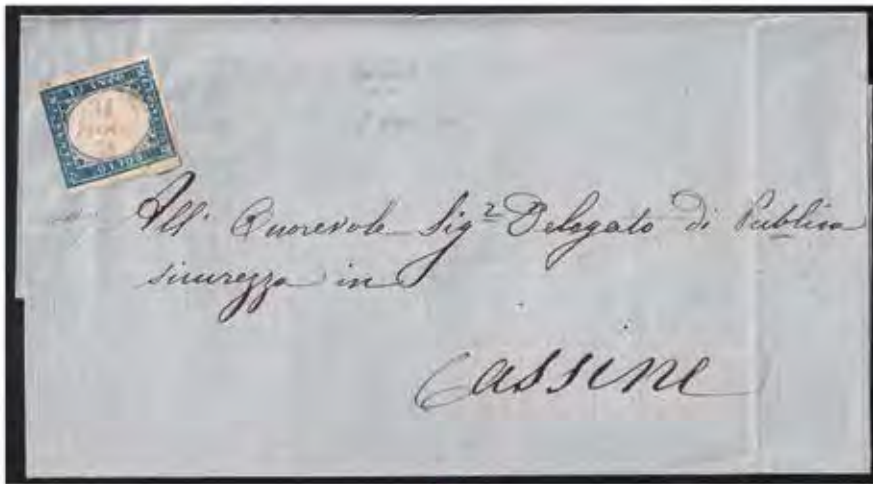 All' Onorevole Sig.r Delegato di Publica
sicurezza in
Cassine